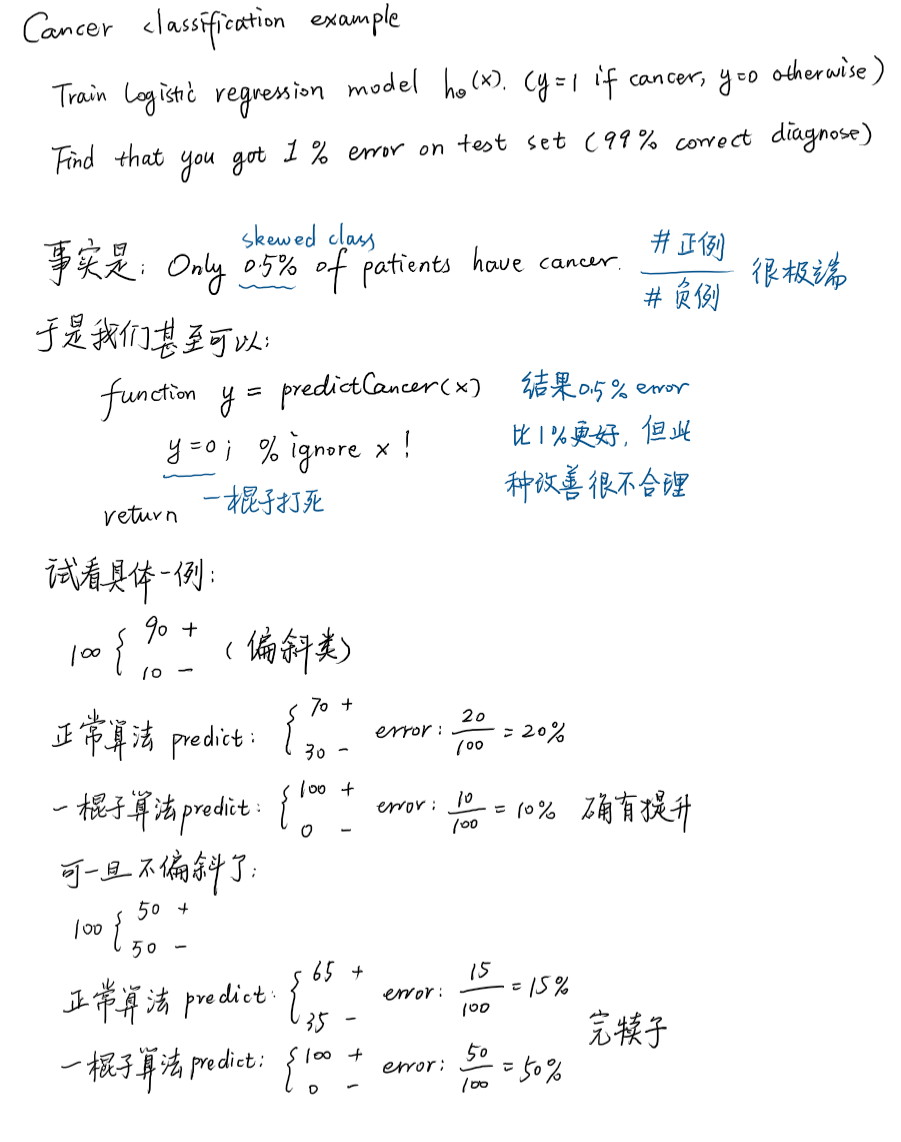 Cancer classification example
Train Logistic regression model hθ(x). (y=1 if cancer, y=0 otherwise)
Find that you got 1% error on test set (99% correct diagnose)
skewed class
事实是: Only 0.5% of patients have cancer. #正例 / #负例 很极端
于是我们甚至可以:
function y = predictCancer(x) 结果0.5% error
y=0; % ignore x! 比1%更好, 但此
一棍子打死 种改善很不合理
return
试看具体一例:
100 { 90 +
10 - (偏斜类)
正常算法 predict: { 70 +
30 - error: 20/100 = 20%
一棍子算法predict: { 100 +
0 - error: 10/100 = 10% 确有提升
可一旦不偏斜了:
100 { 50 +
50 -
正常算法 predict: { 65 +
35 - error: 15/100 = 15%
完犊子
一棍子算法predict: { 100 +
0 - error: 50/100 = 50%